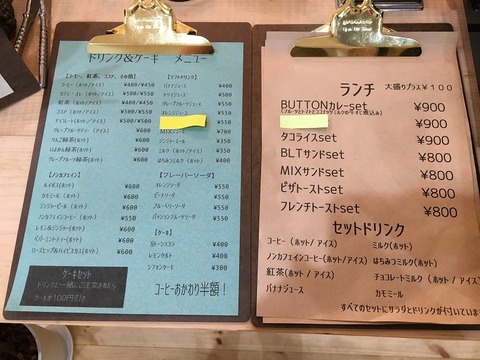 ドリンク&ケーキ メニュー
【コーヒー、紅茶、ココア、その他】
コーヒー(ホット/アイス) ¥400/¥450
カフェ・オレ(ホット/アイス) ¥500/¥550
紅茶(ホット/アイス) ¥400/¥450
ココア(ホット/アイス)
チョコレート(ホット/アイス)
グレープルーツティー(アイス)
りんご緑茶(ホット) ¥600
はみかん緑茶(ホット) ¥600
グレープルーツ緑茶(ホット) ¥600
【ノンカフェイン】
ルイボス(ホット) ¥600
カモミール(ホット) ¥600
ジンジャーピール(ホット) ¥600
ノンカフェインコーヒー(ホット) ¥550
レモン&ジンジャー(ホット) ¥600
ペパーミントティー(ホット) ¥600
ローズヒップ&ハイビスカス(ホット) ¥600
ケーキセット
ドリンクと一緒にご注文されたら
ケーキが100円引き
【ソフトドリンク】
バナナジュース ¥400
トマトジュース ¥550
グレープルーツジュース ¥550
オレンジジュース ¥550
MIXジュース ¥700
ジンジャーミルク ¥350
ミルク(ホット/アイス) ¥300
はちみつミルク(ホット) ¥400
【フレーバーソーダ】
オレンジソーダ ¥550
ピーチソーダ ¥550
ブルーベリーソーダ ¥550
パッションフルーツソーダ ¥550
【ケーキ】
ガトーショコラ ¥400
レモンタルト ¥400
シフォンケーキ ¥300
コーヒーおかわり半額!
ランチ 大盛りプラス¥100
BUTTONカレーset ¥900
¥900
タコライスset ¥900
BLTサンドset ¥800
MIXサンドset ¥800
ピザトーストset ¥800
フレンチトーストset ¥800
セットドリンク
コーヒー(ホット/アイス) ミルク(ホット)
ノンカフェインコーヒー(ホット) はちみつミルク(ホット)
紅茶(ホット/アイス) チョコレートミルク(ホット/アイス)
バナナジュース カモミール
すべてのセットにサラダとドリンクが付いています